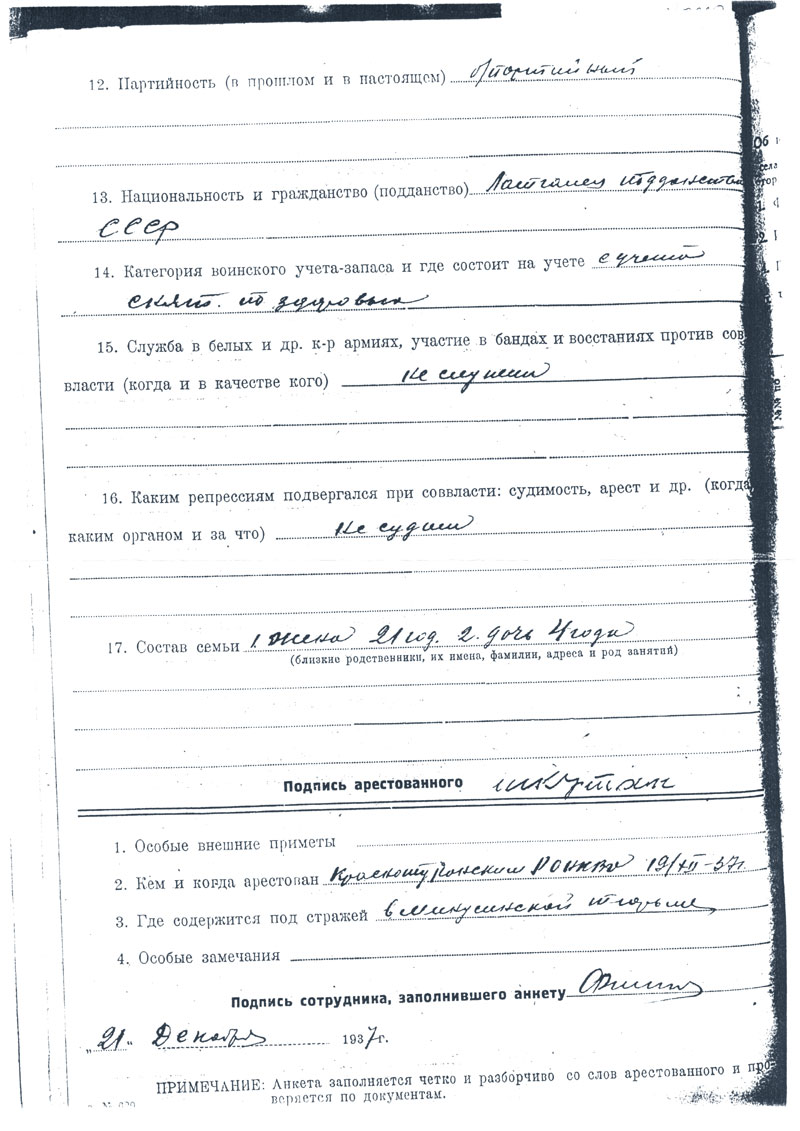 12. Партийность (в прошлом и в настоящем) б/партийный
13. Национальность и гражданство (подданство) Латгалец подданство
СССР
14. Категория воинского учета-запаса и где состоит на учете с учета
снят. по здоровью
15. Служба в белых и др. к-р армиях, участие в бандах и восстаниях против сов
власти (когда и в качестве кого) не служил
16. Каким репрессиям подвергался при соввласти: судимость, арест и др. (когда
каким органом и за что) не судим
17. Состав семьи 1. жена 21 год. 2. дочь 4 года
(близкие родственники, их имена, фамилии, адреса и род занятий)
Подпись арестованного
1. Особые внешние приметы
2. Кем и когда арестован Краснотуранским РОНКВД 19/XII-37г.
3. Где содержится под стражей в Минусинской тюрьме
4. Особые замечания
Подпись сотрудника, заполнившего анкету
„21“ Декабря 1937г.
ПРИМЕЧАНИЕ: Анкета заполняется четко и разборчиво со слов арестованного и про-
веряется по документам.